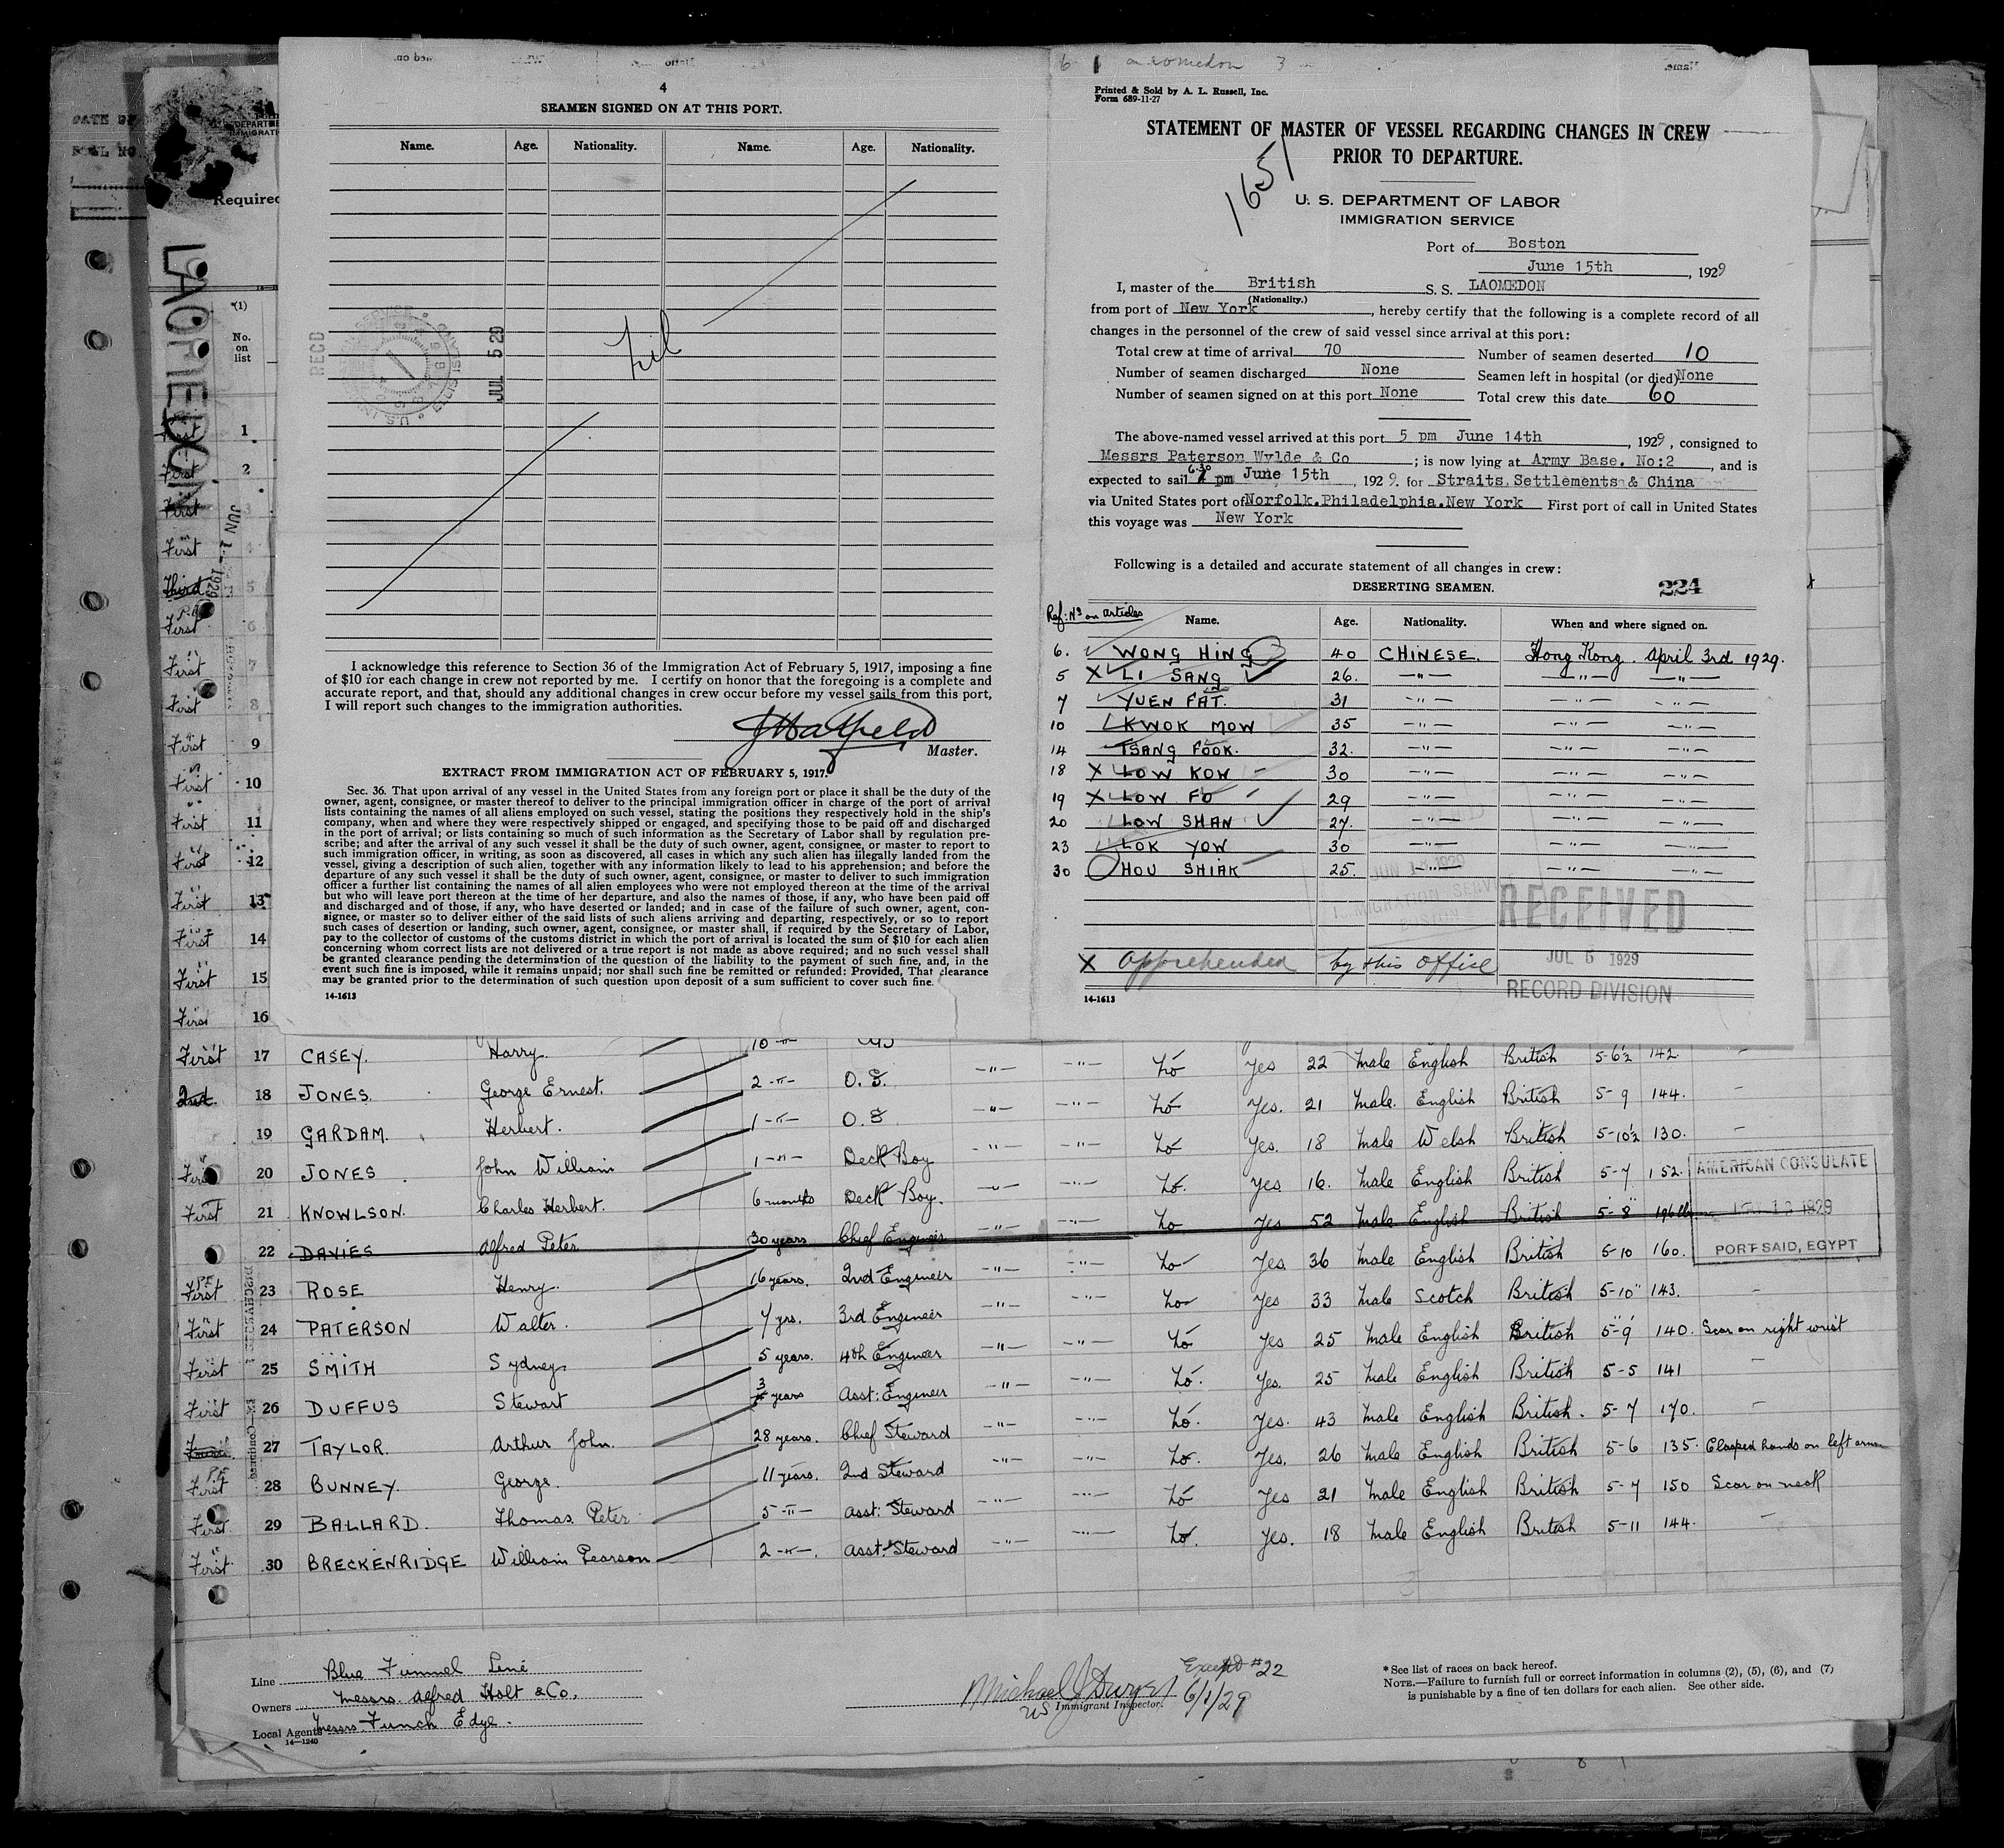 4
SEAMEN SIGNED ON AT THIS PORT.
Name. Age. Nationality. Name. Age. Nationality.
Nil
RECD
JUL 5 29
I acknowledge this reference to Section 36 of the Immigration Act of February 5, 1917, imposing a fine
of $10 for each change in crew not reported by me. I certify on honor that the foregoing is a complete and
accurate report, and that, should any additional changes in crew occur before my vessel sails from this port,
I will report such changes to the immigration authorities.
Master.
EXTRACT FROM IMMIGRATION ACT OF FEBRUARY 5, 1917.
Sec. 36. That upon arrival of any vessel in the United States from any foreign port or place it shall be the duty of the
owner, agent, consignee, or master thereof to deliver to the principal immigration officer in charge of the port of arrival
lists containing the names of all aliens employed on such vessel, stating the positions they respectively hold in the ship's
company, when and where they were respectively shipped or engaged, and specifying those to be paid off and discharged
in the port of arrival; or lists containing so much of such information as the Secretary of Labor shall by regulation pre-
scribe; and after the arrival of any such vessel it shall be the duty of such owner, agent, consignee, or master to report to
such immigration officer, in writing, as soon as discovered, all cases in which any such alien has illegally landed from the
vessel, giving a description of such alien, together with any information likely to lead to his apprehension; and before the
departure of any such vessel it shall be the duty of such owner, agent, consignee, or master to deliver to such immigration
officer a further list containing the names of all alien employees who were not employed thereon at the time of the arrival
but who will leave port thereon at the time of her departure, and also the names of those, if any, who have been paid off
and discharged and of those, if any, who have deserted or landed; and in case of the failure of such owner, agent, con-
signee, or master so to deliver either of the said lists of such aliens arriving and departing, respectively, or so to report
such cases of desertion or landing, such owner, agent, consignee, or master shall, if required by the Secretary of Labor,
pay to the collector of customs of the customs district in which the port of arrival is located the sum of $10 for each alien
concerning whom correct lists are not delivered or a true report is not made as above required; and no such vessel shall
be granted clearance pending the determination of the question of the liability to the payment of such fine, and, in the
event such fine is imposed, while it remains unpaid; nor shall such fine be remitted or refunded: Provided, That clearance
may be granted prior to the determination of such question upon deposit of a sum sufficient to cover such fine.
14-1613
Printed & Sold by A. L. Russell, Inc.
Form 689-11-27
STATEMENT OF MASTER OF VESSEL REGARDING CHANGES IN CREW
PRIOR TO DEPARTURE.
1651
U. S. DEPARTMENT OF LABOR
IMMIGRATION SERVICE
Port of Boston
June 15th, 1929
I, master of the British S. S. LAOMEDON
(Nationality.)
from port of New York, hereby certify that the following is a complete record of all
changes in the personnel of the crew of said vessel since arrival at this port:
Total crew at time of arrival 70 Number of seamen deserted 10
Number of seamen discharged None Seamen left in hospital (or died) None
Number of seamen signed on at this port None Total crew this date 60
The above-named vessel arrived at this port 5 pm June 14th, 1929, consigned to
Messrs Paterson Wylde & Co; is now lying at Army Base. No:2, and is
expected to sail 6.30 pm June 15th, 1929. for Straits Settlements & China
via United States port of Norfolk.Philadelphia.New York First port of call in United States
this voyage was New York
Following is a detailed and accurate statement of all changes in crew:
DESERTING SEAMEN. 224
Ref: Nos on articles Name. Age. Nationality. When and where signed on.
6. WONG HING 40 CHINESE. Hong Kong. April 3rd 1929.
5 X LI SANG 26. —"— —"— —"—
7 YUEN FAT. 31 —"— —"— —"—
10 KWOK MOW 35 —"— —"— —"—
14 TSANG FOOK. 32. —"— —"— —"—
18 X LOW KOW 30 —"— —"— —"—
19 X LOW FO 29 —"— —"— —"—
20 LOW SHAN 27. —"— —"— —"—
23 LOK YOW 30 —"— —"— —"—
30 HOU SHIAK 25. —"— —"— —"—
RECEIVED
JUL 5 1929
RECORD DIVISION
X apprehended by this office
14-1613
Required
LAOMEDON
JUN 1- 1929
(1)
No.
on
list
First 1
First 2
First 3
First 4
Third 5
First 6
First 7
First 8
First 9
First 10
First 11
First 12
First 13
First 14
First 15
First 16
First 17 CASEY. Harry. 10 -"- —"— —"— No Yes 22 Male English British 5-6½ 142. -
2nd 18 JONES. George Ernest. 2 -"- O.S. —"— —"— No Yes. 21 Male. English British 5-9 144. -
19 GARDAM. Herbert. 1 -"- O.S —"— —"— No Yes. 18 Male Welsh British 5-10½ 130. -
First 20 JONES John William 1 -"- Deck Boy —"— —"— No. Yes 16. Male English British 5-7 152.
First 21 KNOWLSON. Charles Herbert. 6 months Deck Boy. —"— —"— No Yes 52 Male English British 5-8 196 lbs
22 DAVIES Alfred Peter 30 years Chief Engineer —"— —"— No Yes. 36 Male English British 5-10 160.
First 23 ROSE Henry. 16 years. 2nd Engineer —"— —"— No Yes 33 Male Scotch British 5-10 143. -
First 24 PATERSON Walter. 7 yrs. 3rd Engineer —"— —"— No Yes 25 Male English British 5-9 140. Scar on right wrist
First 25 SMITH Sydney 5 years. 4th Engineer —"— —"— No. Yes. 25 Male English British 5-5 141 -
First 26 DUFFUS Stewart 3 years Asst: Engineer —"— —"— No. Yes. 43 Male English British. 5-7 170. -
27 TAYLOR. Arthur John. 28 years. Chief Steward —"— —"— No. Yes. 26 Male English British 5-6 135. Clasped hands on left arm
First 28 BUNNEY. George. 11 years. 2nd Steward —"— —"— No Yes 21 Male English British 5-7 150 Scar on neck
First 29 BALLARD. Thomas Peter 5 -"- Asst: Steward —"— —"— No. Yes. 18 Male English British 5-11 144. -
First 30 BRECKENRIDGE William Pearson 2 -"-. Asst: Steward —"—
AMERICAN CONSULATE
1929
PORT SAID, EGYPT
Line Blue Funnel Line
Owners Messrs. Alfred Holt & Co.
Local Agents Messrs. Funch Edye.
14—1240
Michael J Dwyer
US Immigrant Inspector.
Except #22
6/1/29
* See list of races on back hereof.
NOTE.—Failure to furnish full or correct information in columns (2), (5), (6), and (7)
is punishable by a fine of ten dollars for each alien. See other side.